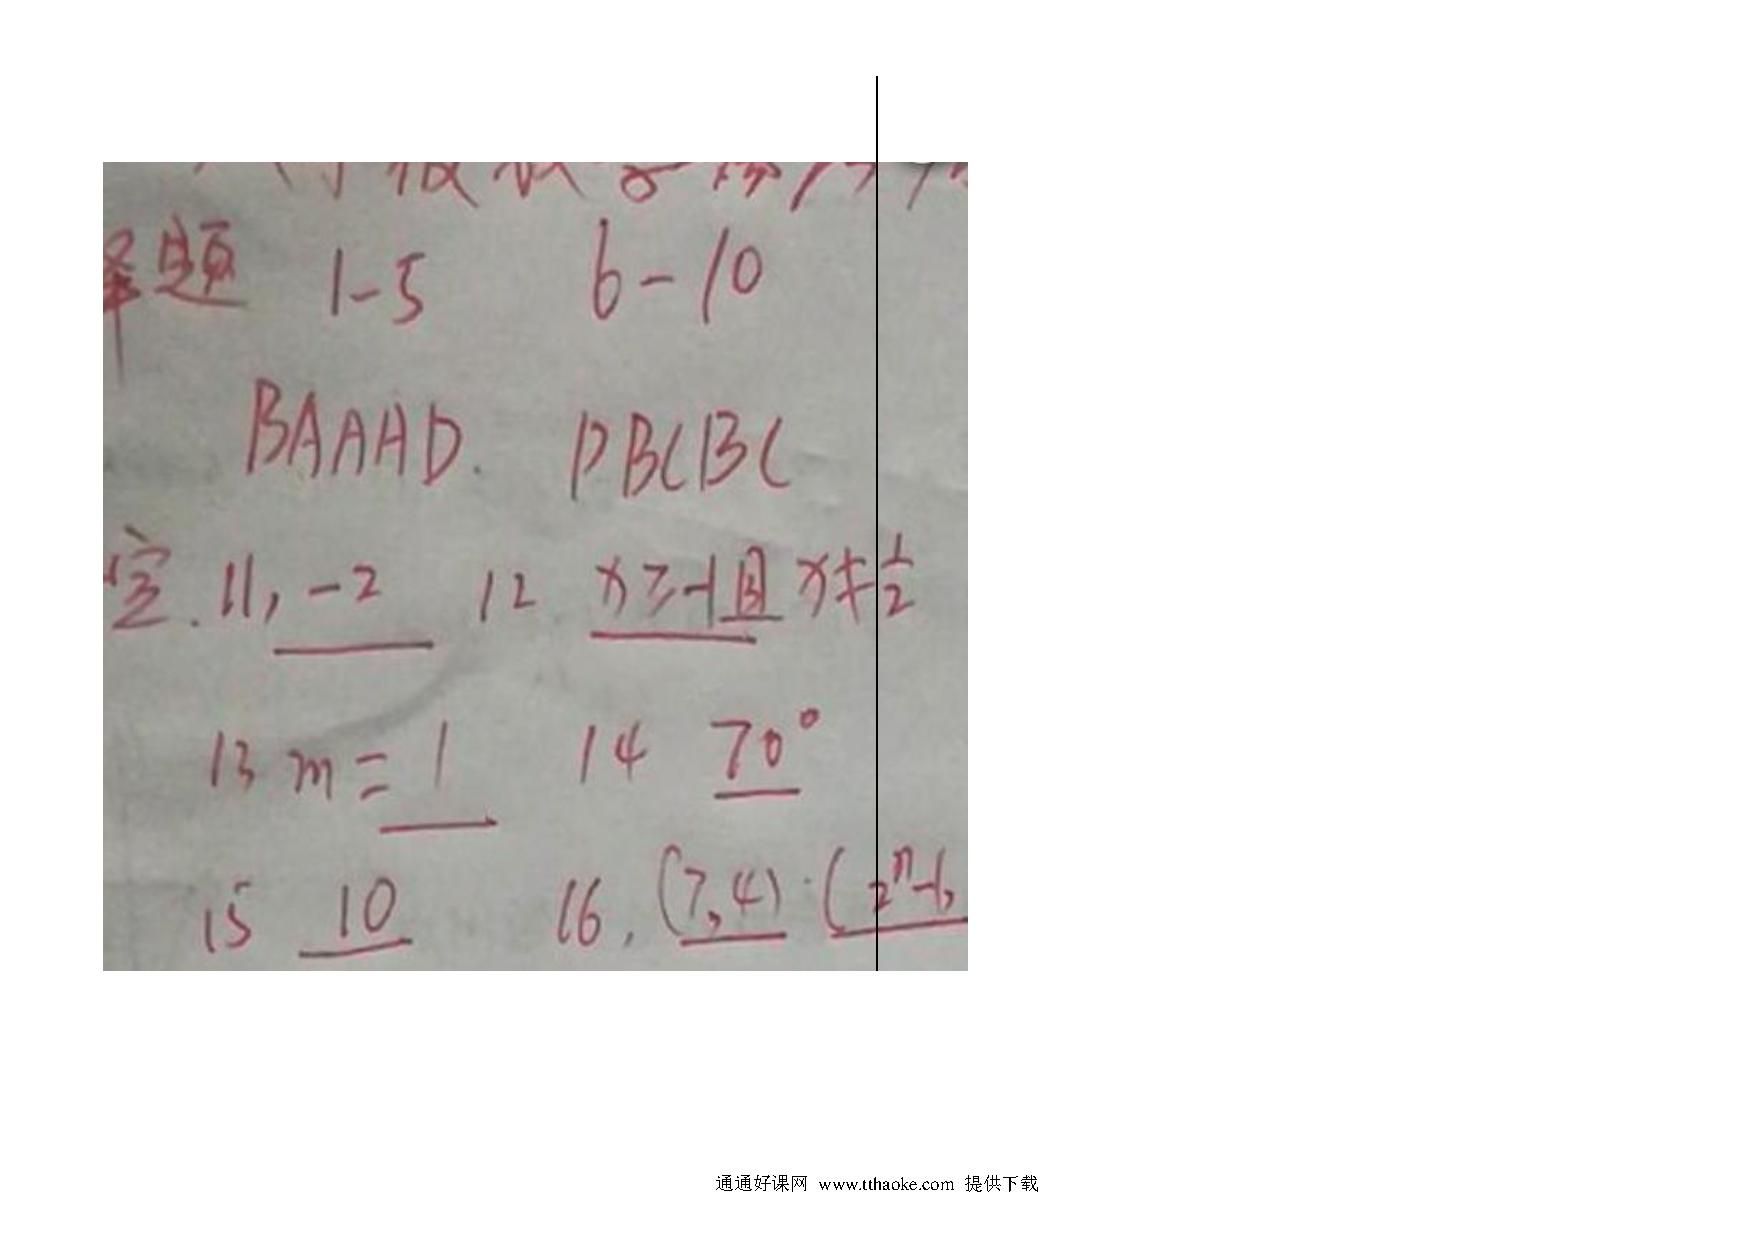 题 1-5 6-10
BAAAD. DBCBC
空. 11, -2 12 x≥-1且x≠1/2
13 m=1 14 70°
15 10 16. (7,4) (2ⁿ-1,
通通好课网 www.tthaoke.com 提供下载